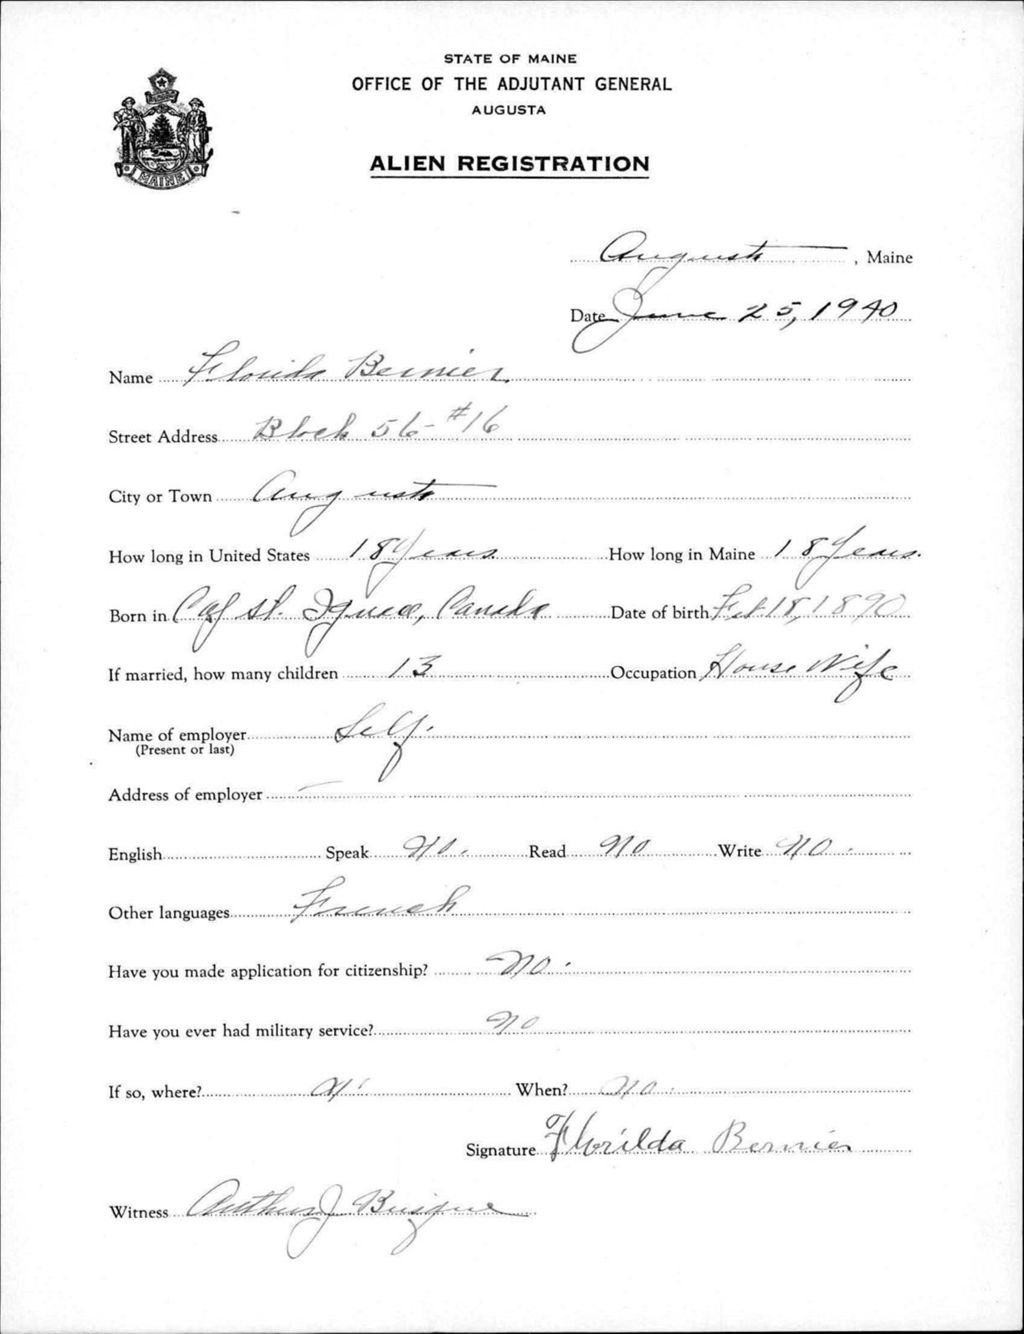 STATE OF MAINE
OFFICE OF THE ADJUTANT GENERAL
AUGUSTA
MAINE
ALIEN REGISTRATION
Augusta, Maine
Date June 25, 1940
Name Florida Bernier
Street Address Block 56 - #16
City or Town Augusta
How long in United States 18 Years How long in Maine 18 Years.
Born in Cap St. Ignace, Canada Date of birth Feb 18, 1890
If married, how many children 13 Occupation House Wife
Name of employer Self.
(Present or last)
Address of employer —
English Speak No. Read No Write No.
Other languages French
Have you made application for citizenship? No.
Have you ever had military service? No
If so, where? When? No.
Signature Florilda Bernier
Witness Arthur J